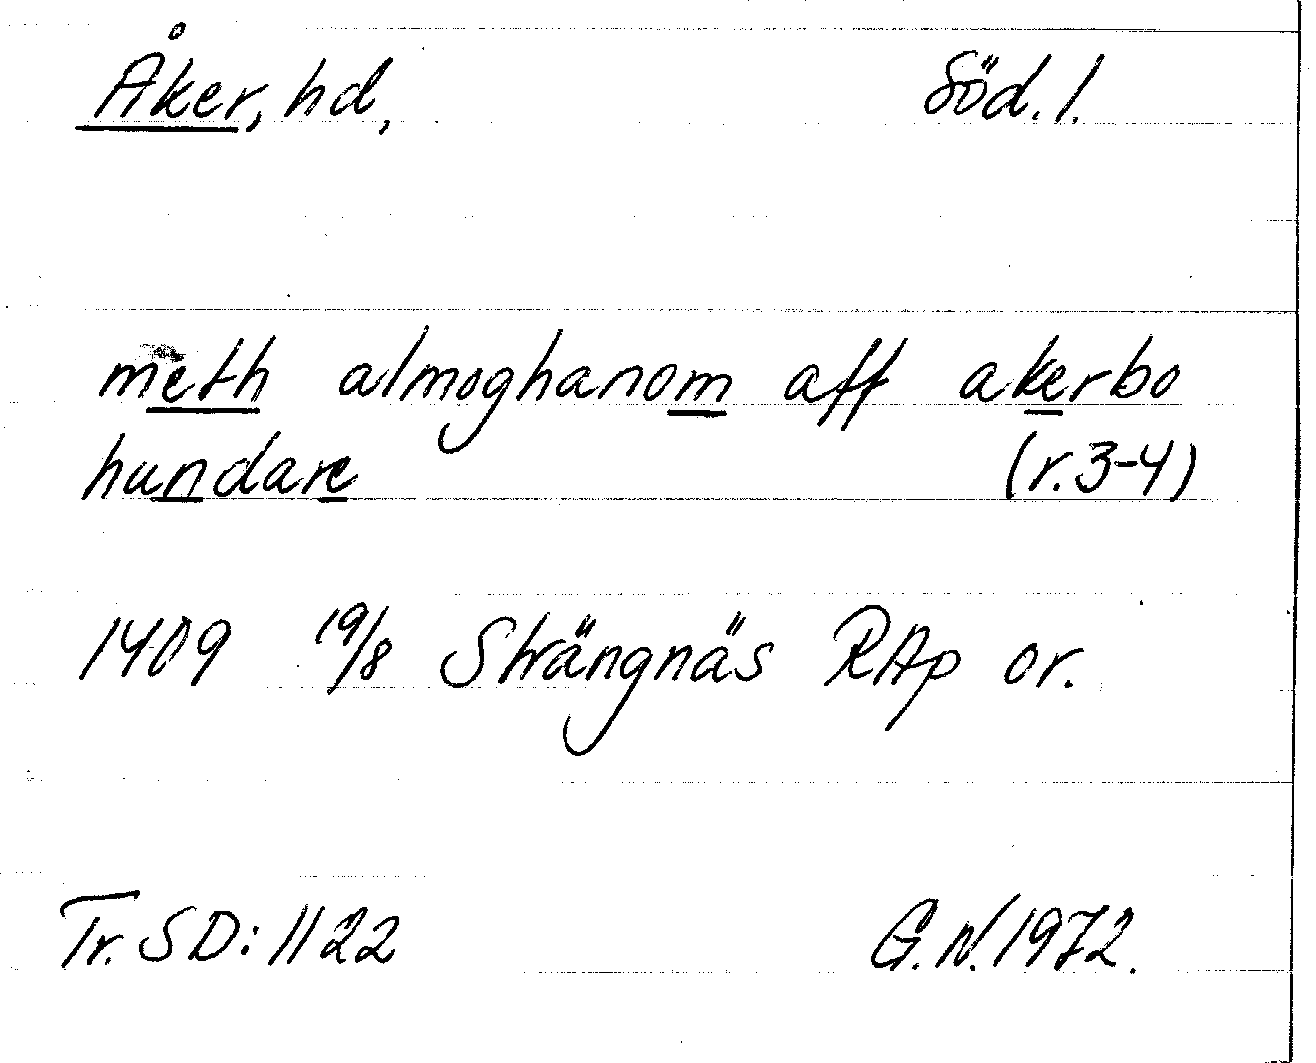 Åker, hd, Söd. l.
meth almoghanom aff akerbo
hundare (r. 3-4)
1409 19/8 Strängnäs RAp or.
Tr. SD: 1122 G. N. 1972.